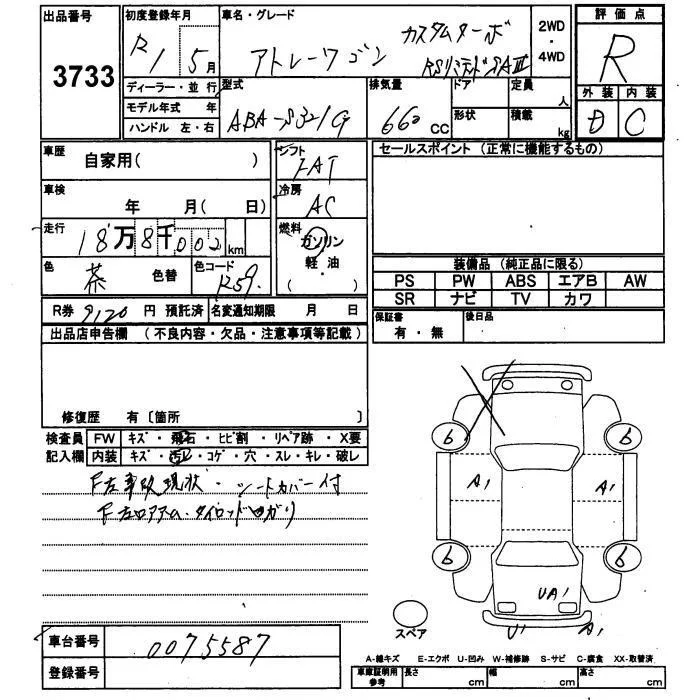 出品番号
3733
初度登録年月
R1 5月
車名・グレード
アトレーワゴン
カスタムターボ
RSリミテッドSAⅢ
2WD
・
4WD
評価点
R
外装 内装
D C
ディーラー・並行
モデル年式 年
ハンドル 左・右
型式
ABA-S321G
排気量
660 CC
ドア
定員
人
形状
積載
kg
車歴
自家用( )
シフト
FAT
車検
年 月( 日)
冷房
AC
走行
18万8千002km
燃料
ガソリン
・
軽油
( )
色
茶
色替
色コード
R59
R券 9120 円 預託済
名変通知期限 月 日
セールスポイント (正常に機能するもの)
装備品 (純正品に限る)
PS PW ABS エアB AW
SR ナビ TV カワ
保証書
有・無
後日品
出品店申告欄 (不良内容・欠品・注意事項等記載)
修復歴 有〔箇所 〕
検査員
記入欄
FW キズ・飛石・ヒビ割・リペア跡・X要
内装 キズ・汚レ・コゲ・穴・スレ・キレ・破レ
F左事故現状・シートカバー付
F左ロアアーム・タイロッド曲がり
6 6
A1 A1
6 6
UA1
U1 A1
スペア
車台番号
0075587
登録番号
A-線キズ E-エクボ U-凹み W-補修跡 S-サビ C-腐食 XX-取替済
車庫証明用
参考
長さ cm
幅 cm
高さ cm